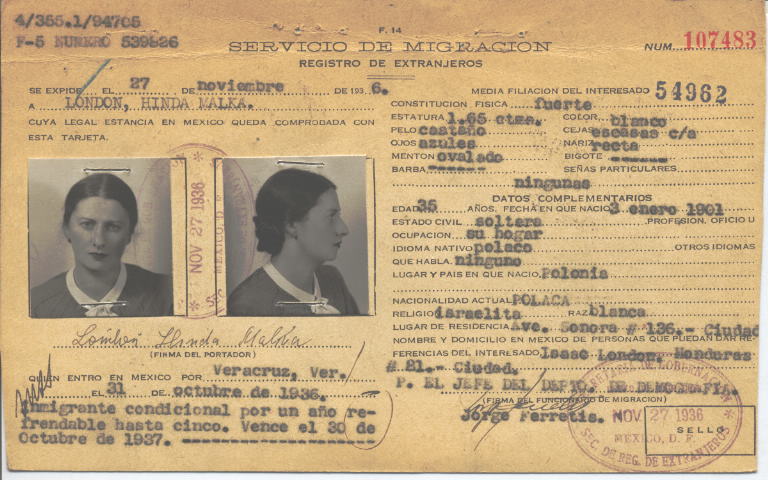 4/355.1/94705
F-5 NUMERO 539826
F. 14
SERVICIO DE MIGRACION
REGISTRO DE EXTRANJEROS
NUM. 107483
SE EXPIDE EL 27 DE noviembre DE 1936.
A LONDON, HINDA MALKA.
CUYA LEGAL ESTANCIA EN MEXICO QUEDA COMPROBADA CON
ESTA TARJETA.
NOV 27 1936
London Hinda Malka
(FIRMA DEL PORTADOR)
QUIEN ENTRO EN MEXICO POR Veracruz, Ver.
EL 31 DE octubre de 1936.
Inmigrante condicional por un año re-
frendable hasta cinco. Vence el 30 de
Octubre de 1937.
MEDIA FILIACION DEL INTERESADO 54962
CONSTITUCION FISICA fuerte
ESTATURA 1.65 ctms. COLOR blanco
PELO castaño CEJAS escasas c/a
OJOS azules NARIZ recta
MENTON ovalado BIGOTE ------
BARBA ------ SEÑAS PARTICULARES
ningunas
DATOS COMPLEMENTARIOS
EDAD 35 AÑOS. FECHA EN QUE NACIO 3 enero 1901
ESTADO CIVIL soltera PROFESION, OFICIO U
OCUPACION su hogar
IDIOMA NATIVO polaco OTROS IDIOMAS
QUE HABLA ninguno
LUGAR Y PAIS EN QUE NACIO Polonia
NACIONALIDAD ACTUAL POLACA
RELIGION israelita RAZA blanca
LUGAR DE RESIDENCIA Ave. Sonora # 136.- Ciudad
NOMBRE Y DOMICILIO EN MEXICO DE PERSONAS QUE PUEDAN DAR RE-
FERENCIAS DEL INTERESADO Isaac London. Honduras
# 81.- Ciudad.
P. EL JEFE DEL DEPTO. DE DEMOGRAFIA.
(FIRMA DEL FUNCIONARIO DE MIGRACION)
Jorge Ferretis.
SECRETARIA DE GOBERNACION
NOV 27 1936
MEXICO, D. F.
SEC. DE REG. DE EXTRANJEROS
SELLO